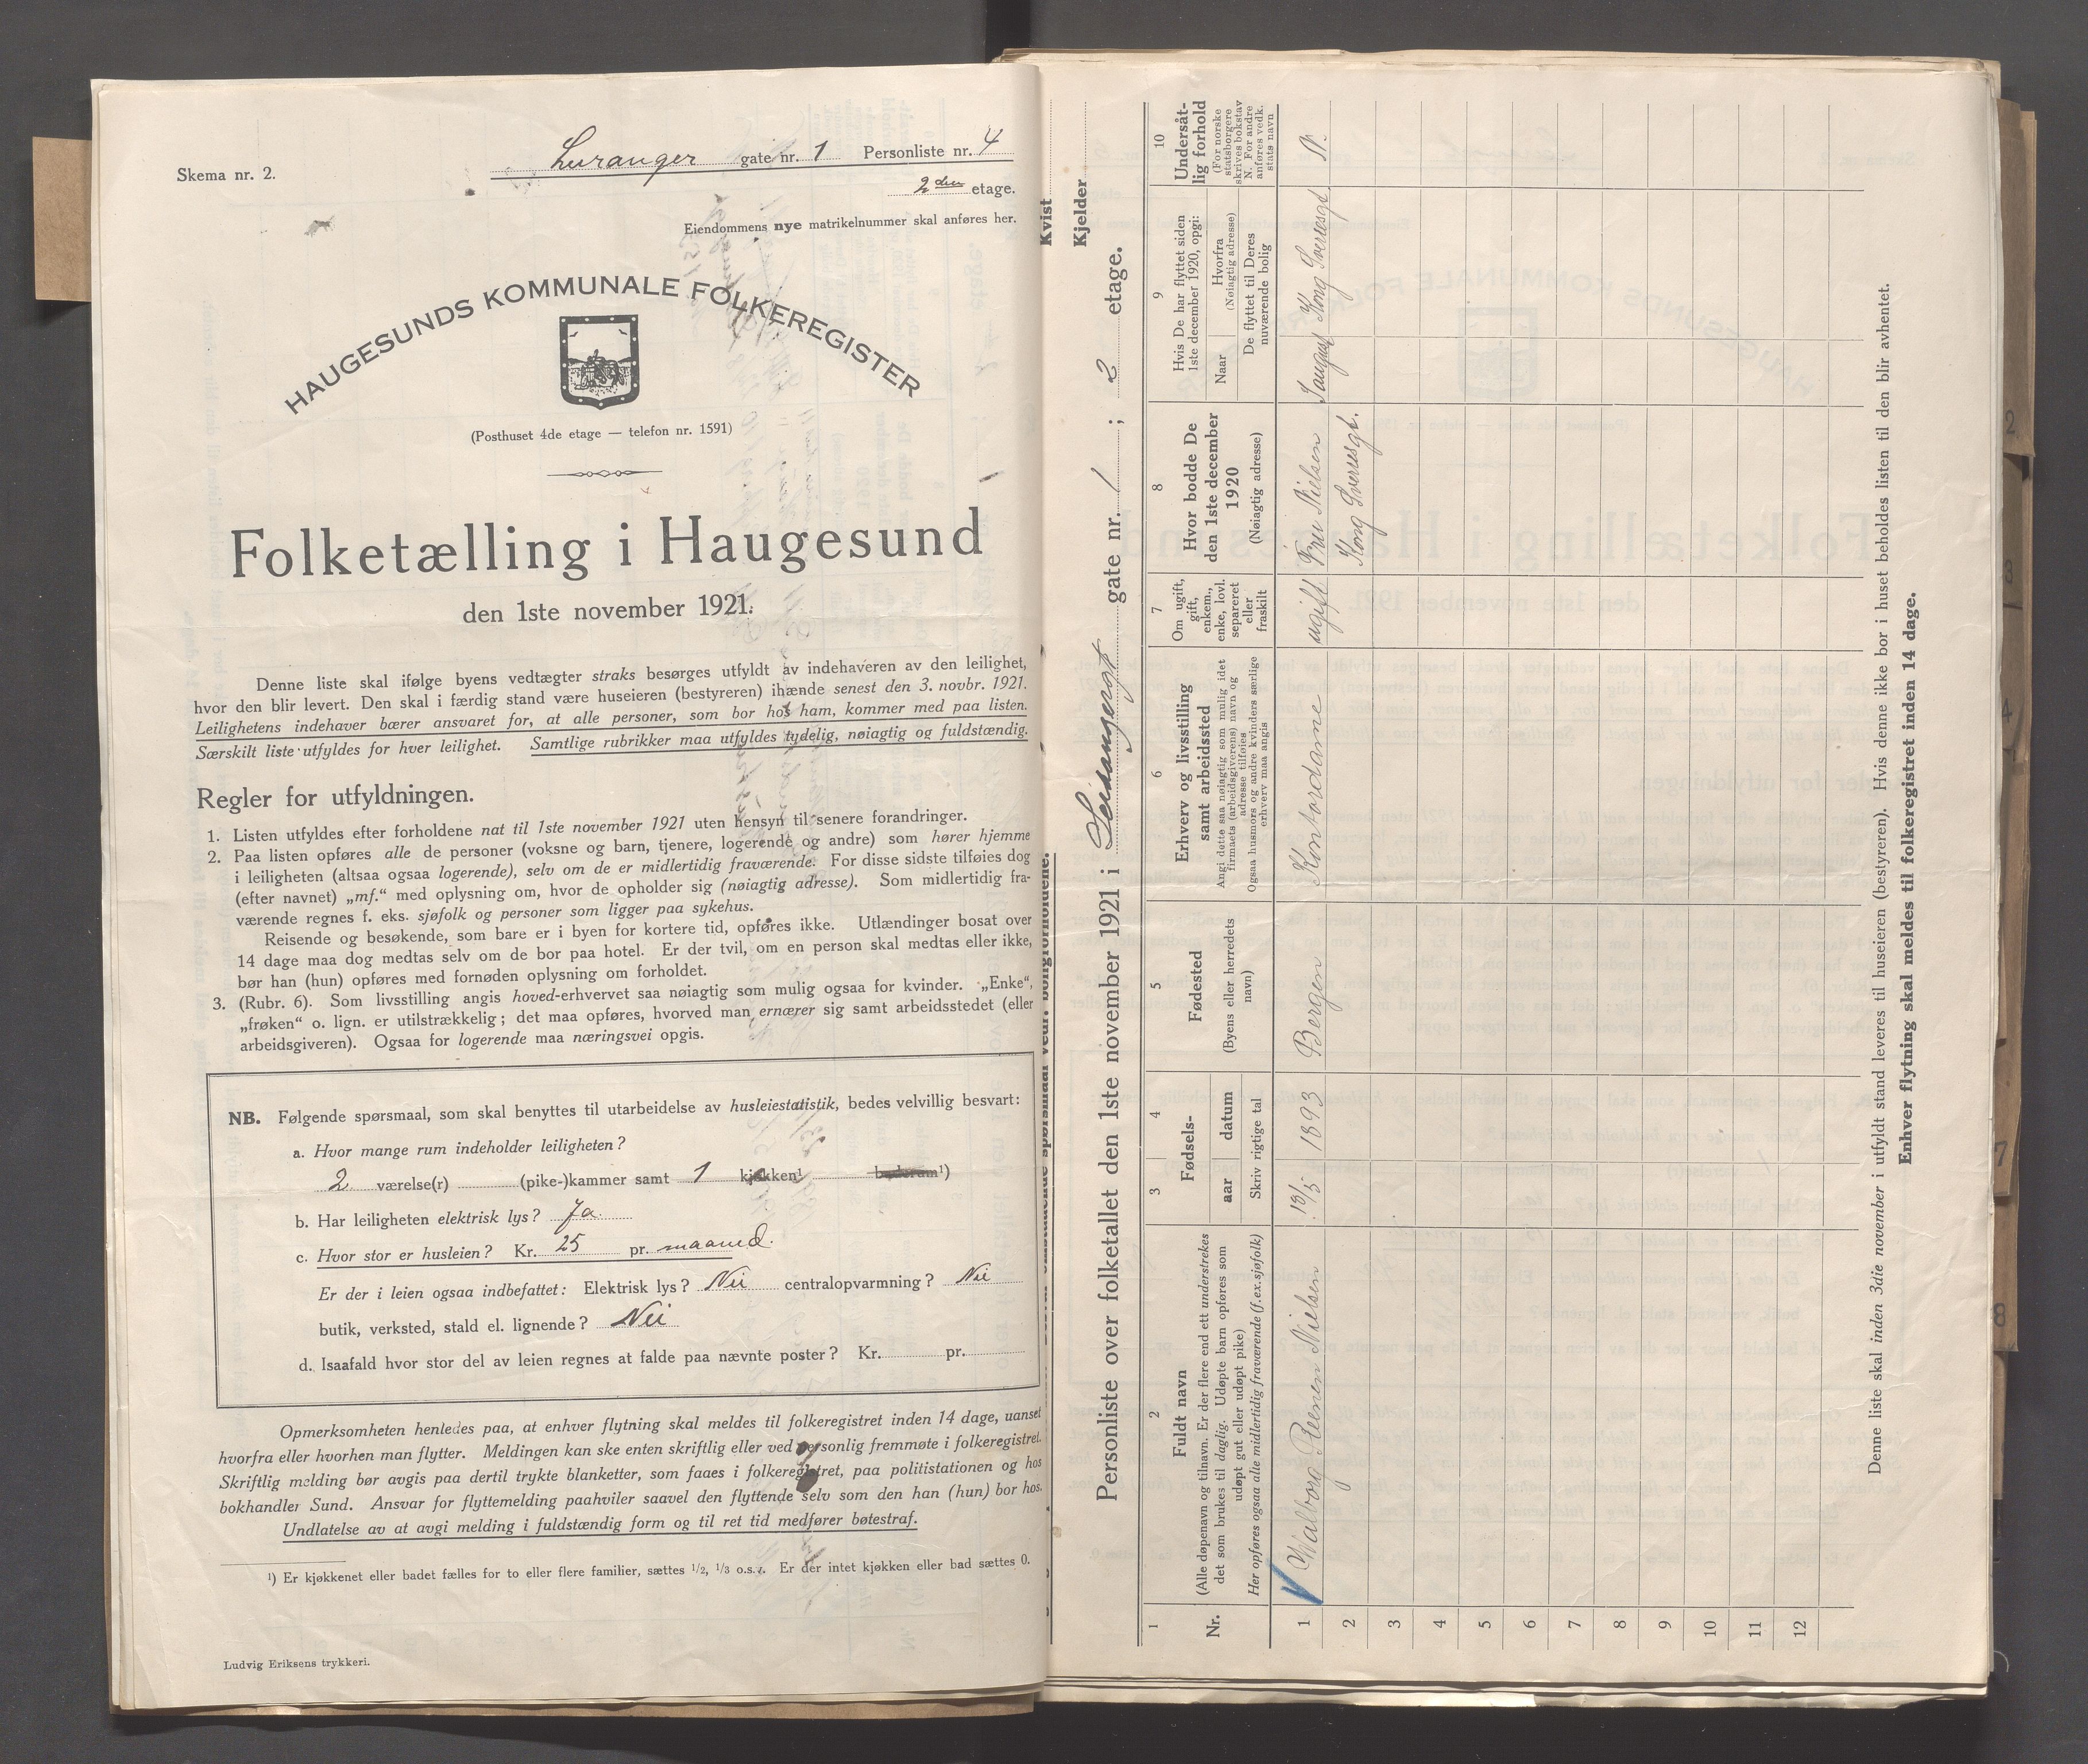 Skema nr. 2.
Luranger gate nr. 1 Personliste nr. 4
2den etage.
Eiendommens nye matrikelnummer skal anføres her.
HAUGESUNDS KOMMUNALE FOLKEREGISTER
(Posthuset 4de etage — telefon nr. 1591)
Folketælling i Haugesund
den 1ste november 1921.
Denne liste skal ifølge byens vedtægter straks besørges utfyldt av indehaveren av den leilighet,
hvor den blir levert. Den skal i færdig stand være huseieren (bestyreren) ihænde senest den 3. novbr. 1921.
Leilighetens indehaver bærer ansvaret for, at alle personer, som bor hos ham, kommer med paa listen.
Særskilt liste utfyldes for hver leilighet. Samtlige rubrikker maa utfyldes tydelig, nøiagtig og fuldstændig.
Regler for utfyldningen.
1. Listen utfyldes efter forholdene nat til 1ste november 1921 uten hensyn til senere forandringer.
2. Paa listen opføres alle de personer (voksne og barn, tjenere, logerende og andre) som hører hjemme
i leiligheten (altsaa ogsaa logerende), selv om de er midlertidig fraværende. For disse sidste tilføies dog
(efter navnet) „mf.“ med oplysning om, hvor de opholder sig (nøiagtig adresse). Som midlertidig fra-
værende regnes f. eks. sjøfolk og personer som ligger paa sykehus.
Reisende og besøkende, som bare er i byen for kortere tid, opføres ikke. Utlændinger bosat over
14 dage maa dog medtas selv om de bor paa hotel. Er der tvil, om en person skal medtas eller ikke,
bør han (hun) opføres med fornøden oplysning om forholdet.
3. (Rubr. 6). Som livsstilling angis hoved-erhvervet saa nøiagtig som mulig ogsaa for kvinder. „Enke“,
„frøken“ o. lign. er utilstrækkelig; det maa opføres, hvorved man ernærer sig samt arbeidsstedet (eller
arbeidsgiveren). Ogsaa for logerende maa næringsvei opgis.
NB. Følgende spørsmaal, som skal benyttes til utarbeidelse av husleiestatistik, bedes velvillig besvart:
a. Hvor mange rum indeholder leiligheten?
2 værelse(r) (pike-)kammer samt 1 kjøkken¹ baderum¹)
b. Har leiligheten elektrisk lys? Ja.
c. Hvor stor er husleien? Kr. 25 pr. maaned.
Er der i leien ogsaa indbefattet: Elektrisk lys? Nei centralopvarmning? Nei
butik, verksted, stald el. lignende? Nei
d. Isaafald hvor stor del av leien regnes at falde paa nævnte poster? Kr. pr.
Opmerksomheten henledes paa, at enhver flytning skal meldes til folkeregistret inden 14 dage, uanset
hvorfra eller hvorhen man flytter. Meldingen kan ske enten skriftlig eller ved personlig fremmøte i folkeregistret.
Skriftlig melding bør avgis paa dertil trykte blanketter, som faaes i folkeregistret, paa politistationen og hos
bokhandler Sund. Ansvar for flyttemelding paahviler saavel den flyttende selv som den han (hun) bor hos.
Undlatelse av at avgi melding i fuldstændig form og til ret tid medfører bøtestraf.
¹) Er kjøkkenet eller badet fælles for to eller flere familier, sættes 1/2, 1/3 o.s.v. Er der intet kjøkken eller bad sættes 0.
Ludvig Eriksens trykkeri.
Kvist
Kjelder
Personliste over folketallet den 1ste november 1921 i gate nr. 1 ; 2 etage.
1
Nr.
2
Fuldt navn
(Alle døpenavn og tilnavn. Er der flere end ett understrekes
det som brukes til daglig. Udøpte barn opføres som
udøpt gut eller udøpt pike)
Her opføres ogsaa alle midlertidig fraværende (f.ex. sjøfolk)
3 4
Fødsels-
aar datum
Skriv rigtige tal
5
Fødested
(Byens eller herredets
navn)
6
Erhverv og livsstilling
samt arbeidssted
Angi dette saa nøiagtig som mulig idet
firmaets (arbeidsgiverens) navn og
adresse tilføies
Ogsaa husmors og andre kvinders særlige
erhverv maa angis
7
Om ugift,
gift,
enkem.,
enke, lovl.
separeret
eller
fraskilt
8
Hvor bodde De
den 1ste december
1920
(Nøiagtig adresse)
9
Hvis De har flyttet siden
1ste december 1920, opgi:
Naar
Hvorfra
(Nøiagtig adresse)
De flyttet til Deres
nuværende bolig
10
Undersåt-
lig forhold
(For norske
statsborgere
skrives bokstav
N. For andre
anføres vedk.
stats navn
1 Walborg Steenen Nielsen 13/5 1893 Bergen Kontordame ugift Fru Nielsen August Kong Sverresgt. N.
2 Kong Sverresgt.
3
4
5
6
7
8
9
10
11
12
Denne liste skal inden 3die november i utfyldt stand leveres til huseieren (bestyreren). Hvis denne ikke bor i huset beholdes listen til den blir avhentet.
Enhver flytning skal meldes til folkeregistret inden 14 dage.